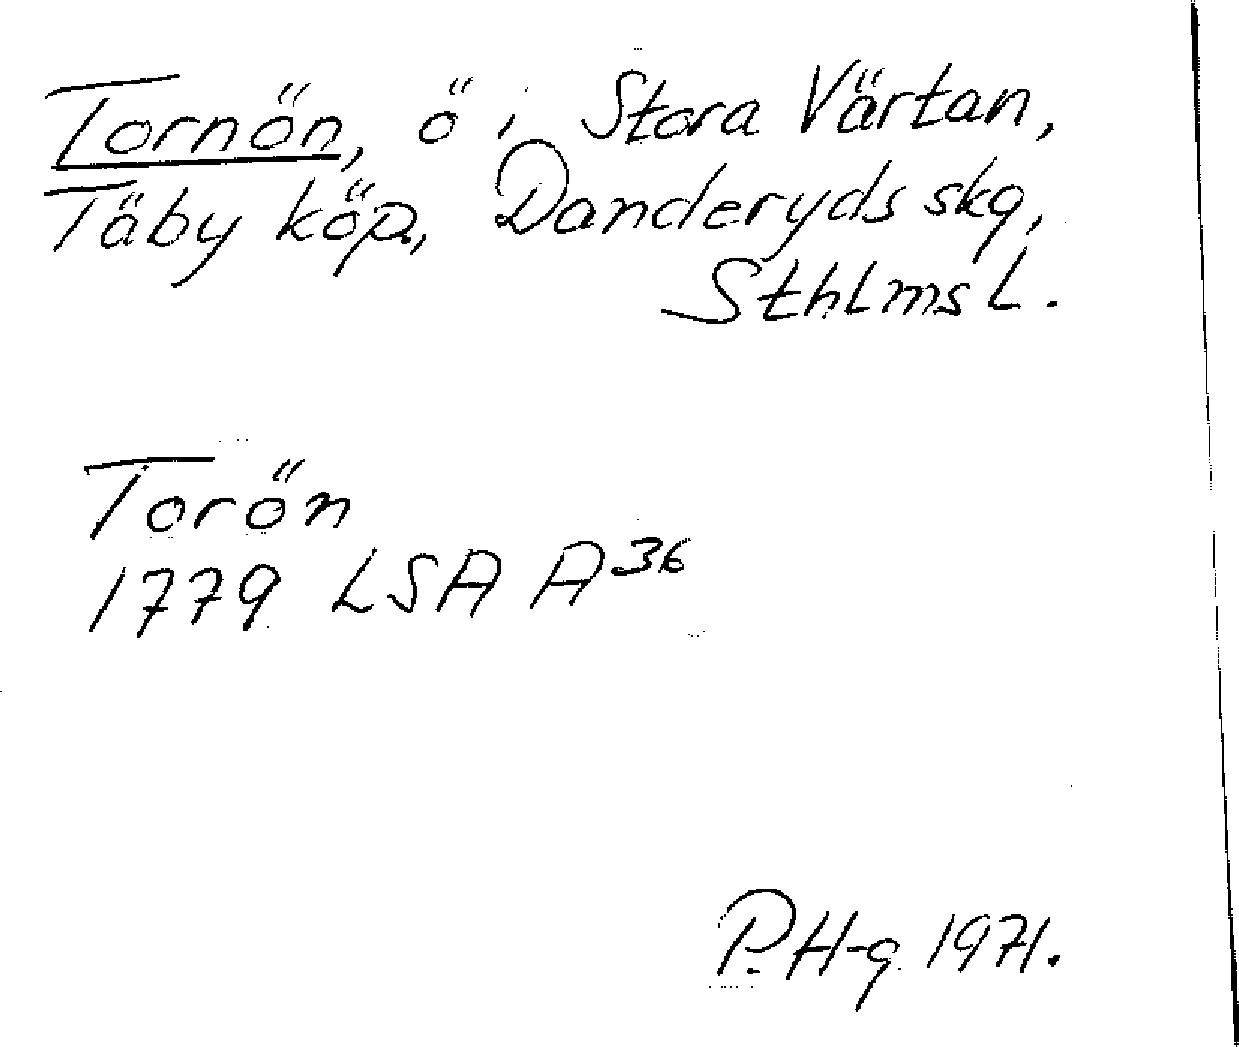 Tornön, ö i Stora Värtan,
Täby köp., Danderyds skg,
Sthlms L.
Torön
1779 LSA A36
P. H-g. 1971.